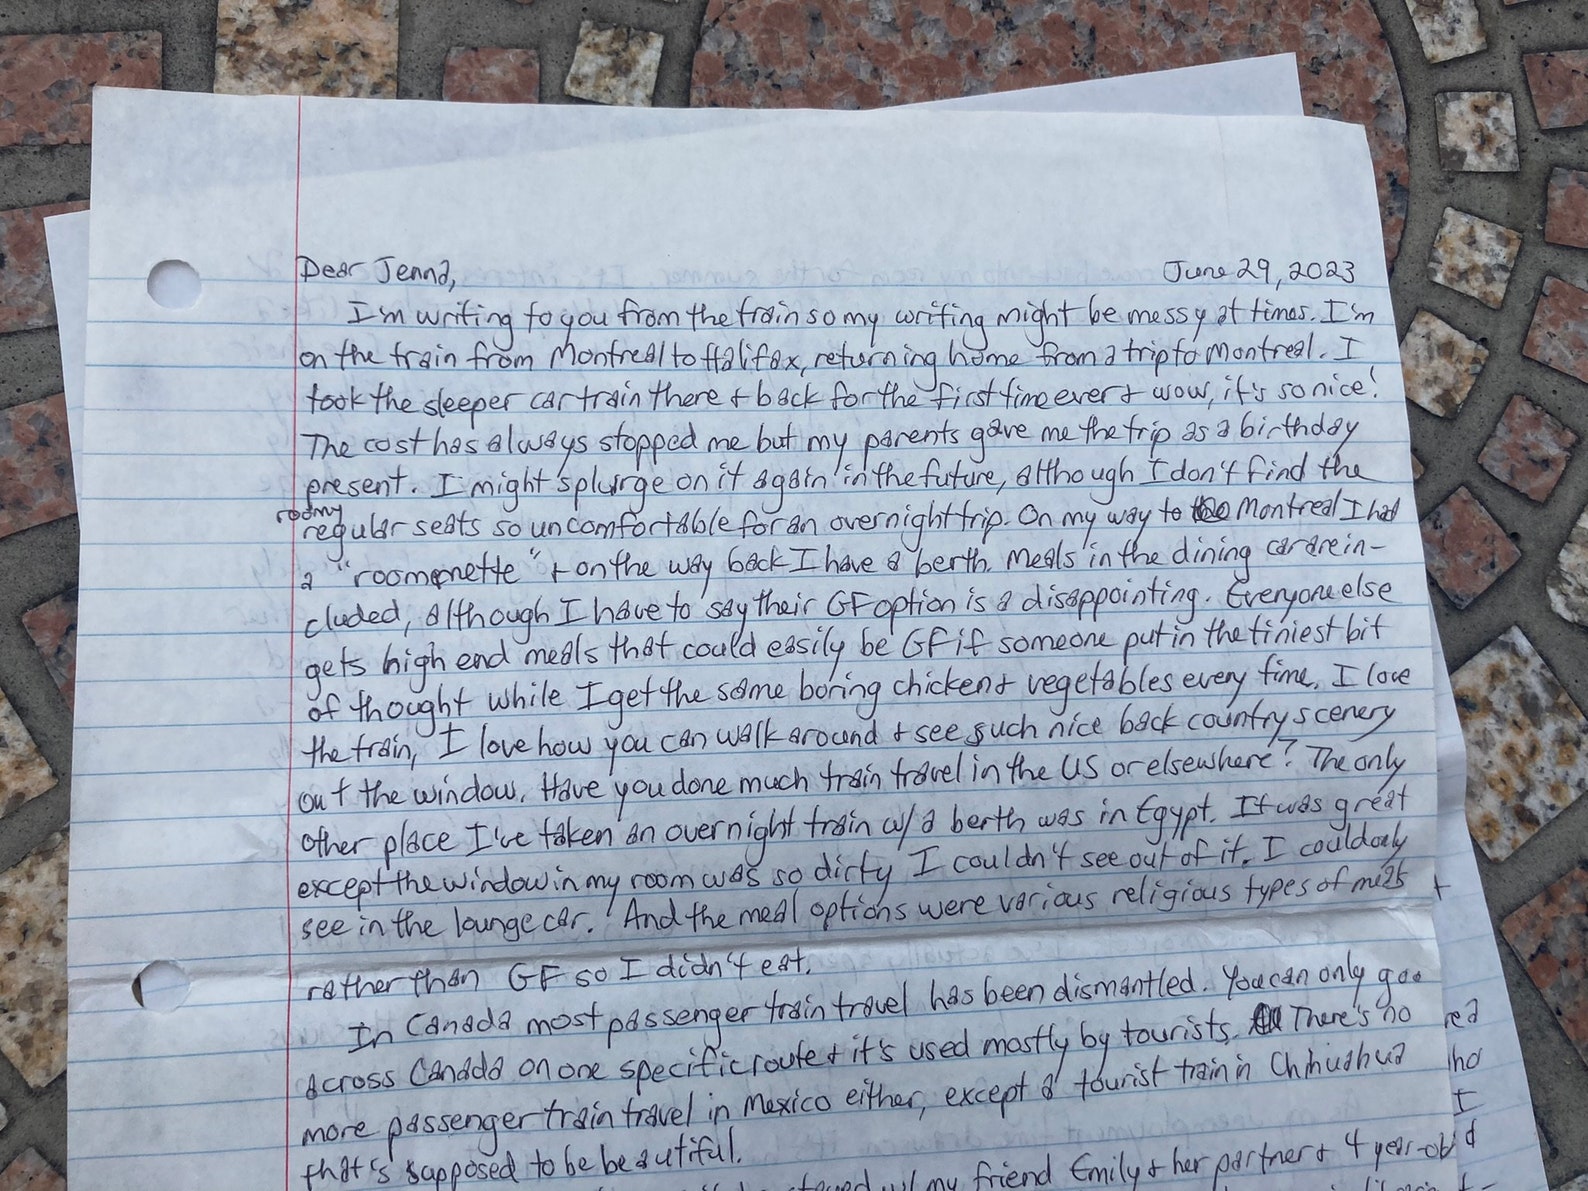 Dear Jenna,
June 29, 2023
I'm writing to you from the train so my writing might be messy at times. I'm
on the train from Montreal to Halifax, returning home from a trip to Montreal. I
took the sleeper car train there + back for the first time ever + wow, it's so nice!
The cost has always stopped me but my parents gave me the trip as a birthday
present. I might splurge on it again in the future, although I don't find the
roomy
regular seats so uncomfortable for an overnight trip. On my way to Montreal I had
a "roomenette" + on the way back I have a berth. Meals in the dining car are in-
cluded, although I have to say their GF option is a disappointing. Everyone else
gets high end meals that could easily be GF if someone put in the tiniest bit
of thought while I get the same boring chicken + vegetables every time. I love
the train, I love how you can walk around + see such nice back country scenery
out the window. Have you done much train travel in the US or elsewhere? The only
other place I've taken an overnight train w/ a berth was in Egypt. It was great
except the window in my room was so dirty I couldn't see out of it. I could only
see in the lounge car. And the meal options were various religious types of meat
rather than GF so I didn't eat.
In Canada most passenger train travel has been dismantled. You can only go
across Canada on one specific route + it's used mostly by tourists. There's no
more passenger train travel in Mexico either, except a tourist train in Chihuahua
that's supposed to be beautiful.
w/ my friend Emily + her partner + 4 year-old